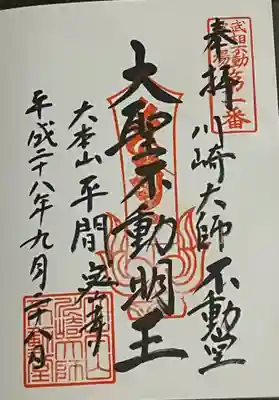 武相不動
霊場第一番
奉拝 川崎大師 不動堂
大聖不動明王
大本山 平間寺
平成二十八年九月二十八日